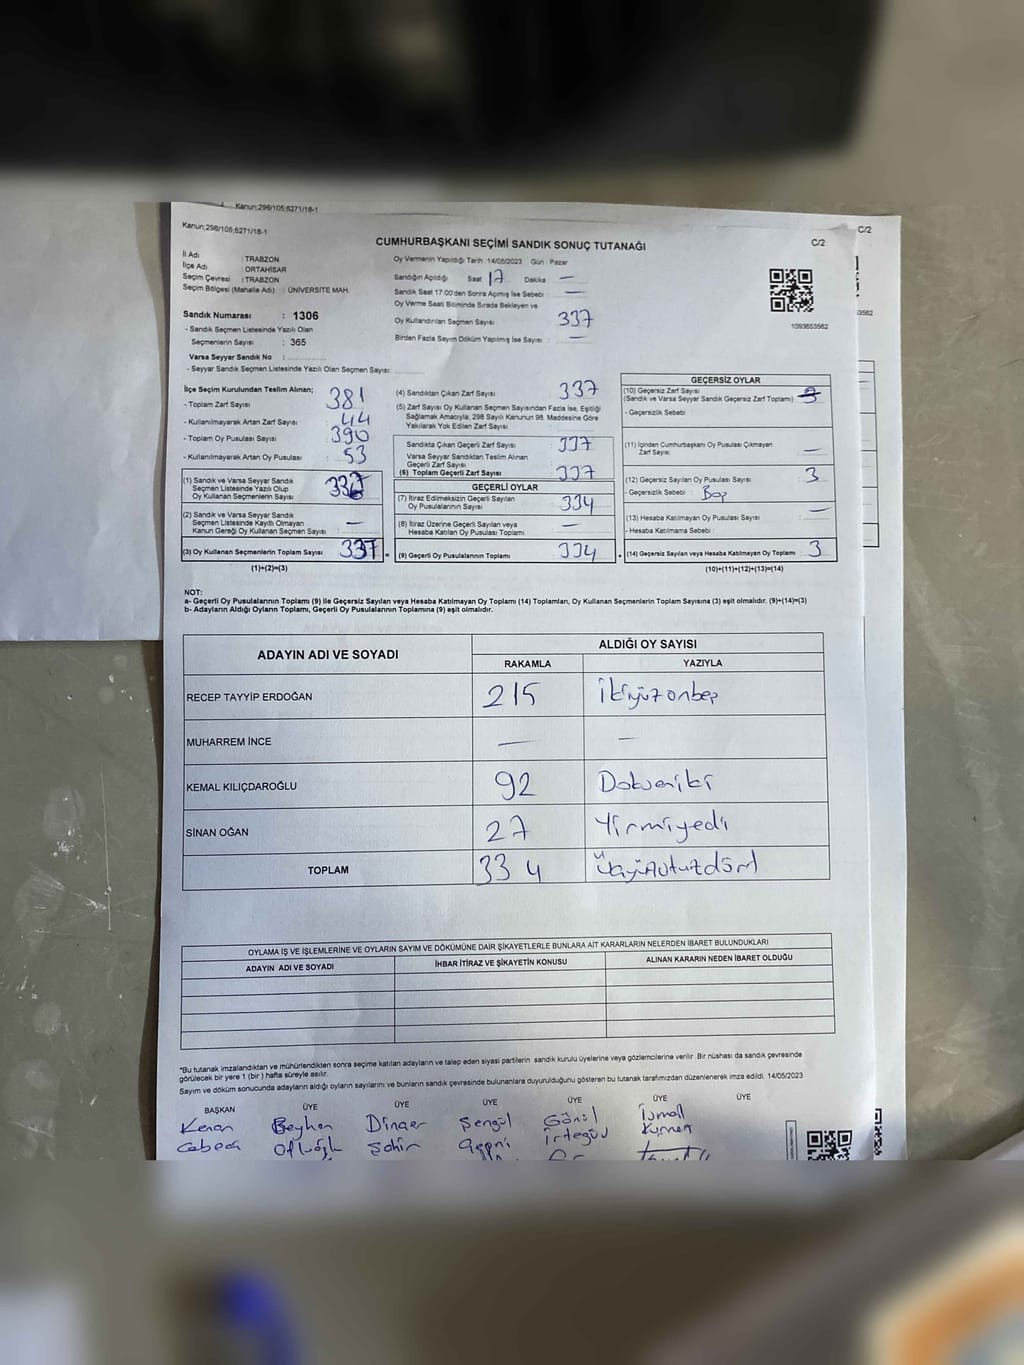 Kanun:298/105;6271/18-1
Kanun;298/105;6271/18-1
C/2
CUMHURBAŞKANI SEÇİMİ SANDIK SONUÇ TUTANAĞI
C/2
İl Adı : TRABZON
İlçe Adı : ORTAHİSAR
Seçim Çevresi : TRABZON
Seçim Bölgesi (Mahalle Adı) : ÜNİVERSİTE MAH.
Oy Vermenin Yapıldığı Tarih :14/05/2023 Gün : Pazar
Sandığın Açıldığı Saat 17 Dakika —
Sandık Saat 17:00'den Sonra Açılmış İse Sebebi : —
Oy Verme Saati Bitiminde Sırada Bekleyen ve
Oy Kullandırılan Seçmen Sayısı : 337
Birden Fazla Sayım Döküm Yapılmış İse Sayısı : —
1093653562
Sandık Numarası : 1306
- Sandık Seçmen Listesinde Yazılı Olan
Seçmenlerin Sayısı : 365
Varsa Seyyar Sandık No :
- Seyyar Sandık Seçmen Listesinde Yazılı Olan Seçmen Sayısı:
İlçe Seçim Kurulundan Teslim Alınan;
- Toplam Zarf Sayısı : 381
- Kullanılmayarak Artan Zarf Sayısı : 44
- Toplam Oy Pusulası Sayısı : 390
- Kullanılmayarak Artan Oy Pusulası : 53
(1) Sandık ve Varsa Seyyar Sandık
Seçmen Listesinde Yazılı Olup
Oy Kullanan Seçmenlerin Sayısı : 337
(2) Sandık ve Varsa Seyyar Sandık
Seçmen Listesinde Kayıtlı Olmayan
Kanun Gereği Oy Kullanan Seçmen Sayısı : —
(3) Oy Kullanan Seçmenlerin Toplam Sayısı : 337
(1)+(2)=(3)
(4) Sandıktan Çıkan Zarf Sayısı : 337
(5) Zarf Sayısı Oy Kullanan Seçmen Sayısından Fazla ise, Eşitliği
Sağlamak Amacıyla; 298 Sayılı Kanunun 98. Maddesine Göre
Yakılarak Yok Edilen Zarf Sayısı :
Sandıkta Çıkan Geçerli Zarf Sayısı : 337
Varsa Seyyar Sandıktan Teslim Alınan
Geçerli Zarf Sayısı :
(6) Toplam Geçerli Zarf Sayısı : 337
GEÇERLİ OYLAR
(7) İtiraz Edilmeksizin Geçerli Sayılan
Oy Pusulalarının Sayısı : 334
(8) İtiraz Üzerine Geçerli Sayılan veya
Hesaba Katılan Oy Pusulası Toplamı : —
(9) Geçerli Oy Pusulalarının Toplamı : 334
GEÇERSİZ OYLAR
(10) Geçersiz Zarf Sayısı
(Sandık ve Varsa Seyyar Sandık Geçersiz Zarf Toplamı) : 3
- Geçersizlik Sebebi :
(11) İçinden Cumhurbaşkanı Oy Pusulası Çıkmayan
Zarf Sayısı : —
(12) Geçersiz Sayılan Oy Pusulası Sayısı : 3
- Geçersizlik Sebebi : Boş
(13) Hesaba Katılmayan Oy Pusulası Sayısı : —
- Hesaba Katılmama Sebebi :
(14) Geçersiz Sayılan veya Hesaba Katılmayan Oy Toplamı : 3
(10)+(11)+(12)+(13)=(14)
NOT:
a- Geçerli Oy Pusulalarının Toplamı (9) ile Geçersiz Sayılan veya Hesaba Katılmayan Oy Toplamı (14) Toplamları, Oy Kullanan Seçmenlerin Toplam Sayısına (3) eşit olmalıdır. (9)+(14)=(3)
b- Adayların Aldığı Oyların Toplamı, Geçerli Oy Pusulalarının Toplamına (9) eşit olmalıdır.
ADAYIN ADI VE SOYADI
ALDIĞI OY SAYISI
RAKAMLA YAZIYLA
RECEP TAYYİP ERDOĞAN 215 İkiyüzonbeş
MUHARREM İNCE — —
KEMAL KILIÇDAROĞLU 92 Doksaniki
SİNAN OĞAN 27 Yirmiyedi
TOPLAM 334 Üçyüzotuzdört
OYLAMA İŞ VE İŞLEMLERİNE VE OYLARIN SAYIM VE DÖKÜMÜNE DAİR ŞİKAYETLERLE BUNLARA AİT KARARLARIN NELERDEN İBARET BULUNDUKLARI
ADAYIN ADI VE SOYADI İHBAR İTİRAZ VE ŞİKAYETİN KONUSU ALINAN KARARIN NEDEN İBARET OLDUĞU
*Bu tutanak imzalandıktan ve mühürlendikten sonra seçime katılan adayların ve talep eden siyasi partilerin sandık kurulu üyelerine veya gözlemcilerine verilir. Bir nüshası da sandık çevresinde
görülecek bir yere 1 (bir) hafta süreyle asılır.
Sayım ve döküm sonucunda adayların aldığı oyların sayılarını ve bunların sandık çevresinde bulunanlara duyurulduğunu gösteren bu tutanak tarafımızdan düzenlenerek imza edildi. 14/05/2023
BAŞKAN ÜYE ÜYE ÜYE ÜYE ÜYE ÜYE
Kenan Beyhan Dinçer Şengül Gönül İsmail
Şahin